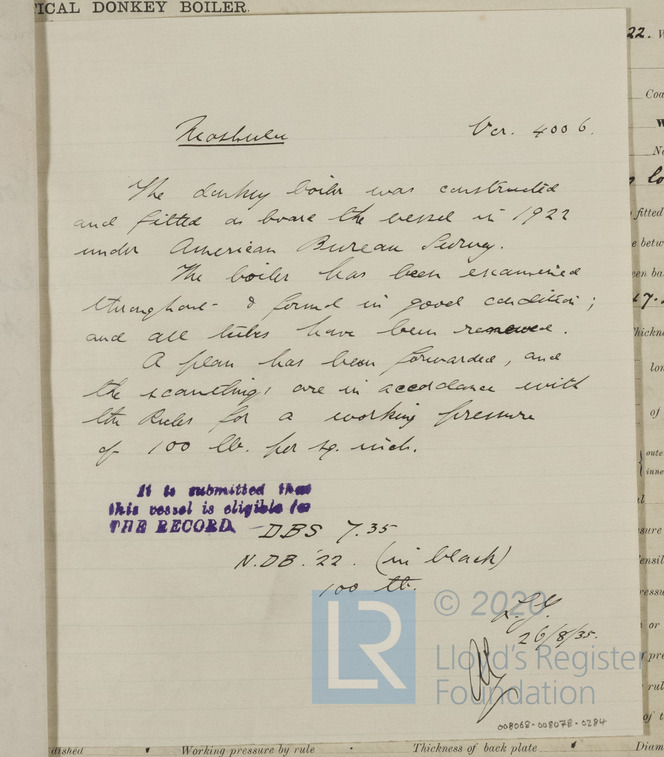 TICAL DONKEY BOILER.
Ver. 4006.
The donkey boiler was constructed
and fitted on board the vessel in 1922
under American Bureau Survey.
The boiler has been examined
throughout & found in good condition;
and all tubes have been renewed.
A plan has been forwarded, and
the scantlings are in accordance with
the Rules for a working pressure
of 100 lb. per sq. inch.
It is submitted that
this vessel is eligible for
THE RECORD. DBS 7.35
N.DB. '22. (in black)
100 lb.
26/8/35.
LR
© 2020
Lloyd's Register
Foundation
008068-008078-0284
dished
Working pressure by rule
Thickness of back plate
Diam
22.
Coa
fitted